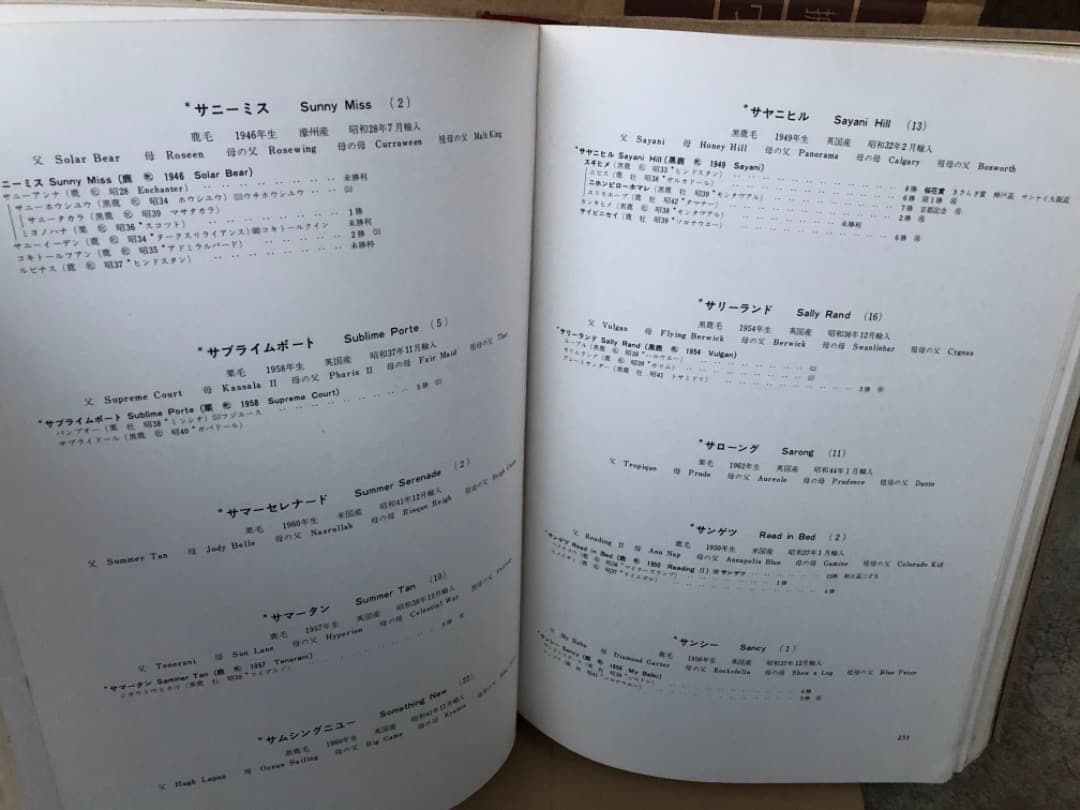 *サニーミス Sunny Miss (2)
鹿毛 1946年生 濠州産 昭和28年7月輸入
父 Solar Bear 母 Roseen 母の父 Rosewing 母の母 Curraween 祖母の父 Malt King
ニーミス Sunny Miss (鹿 牝 1946 Solar Bear)
サニーアンナ (鹿 牝 昭28 Enchanter) 未勝利
サニーホーシユウ (黒鹿 牝 昭34 ホウシユウ)
サニータカラ (黒鹿 牝 昭39 マサタカラ)
ミヨノハナ (栗 牝 昭36 *スコツト) 1勝
サニーイーデン (鹿 牝 昭34 *タークスリライアンス) コキトールクイン 未勝利
コキトールフアン (鹿 牝 昭35 *アドミラルバード) 2勝
ルピナス (鹿 牝 昭37 *ヒンドスタン) 未勝利
*サブライムポート Sublime Porte (5)
栗毛 1958年生 英国産 昭和37年11月輸入
父 Supreme Court 母 Kassala II 母の父 Pharis II 母の母 Fair Maid 祖母の父
*サブライムポート Sublime Porte (栗 牝 1958 Supreme Court)
バンブオー (栗 牡 昭38 *ミンシオ) フジエース 5勝
サブライドール (黒鹿 牝 昭40 *ガバドール)
*サマーセレナード Summer Serenade (2)
栗毛 1960年生 米国産 昭和41年12月輸入
父 Summer Tan 母 Jody Belle 母の父 Nasrullah 母の母 Risque Reigh 祖母の父 Reigh Count
*サマータン Summer Tan (10)
鹿毛 1957年生 英国産 昭和38年12月輸入
父 Tenerani 母 Sun Lane 母の父 Hyperion 母の母 Celestial War 祖母の父
*サマータン Summer Tan (鹿 牝 1957 Tenerani) 5勝
*サムシングニユー Something New (22)
黒鹿毛 1960年生 英国産 昭和41年11月輸入
父 Hugh Lupus 母 Ocean Sailing 母の父 Big Game 母の母 Kyanos
*サヤニヒル Sayani Hill (13)
黒鹿毛 1949年生 英国産 昭和32年2月輸入
父 Sayani 母 Honey Hill 母の父 Panorama 母の母 Calgary 祖母の父 Bosworth
*サヤニヒル Sayani Hill (黒鹿 牝 1949 Sayani)
スギヒメ (鹿 牝 昭33 *ヒンドスタン) 8勝 桜花賞 きさらぎ賞 神戸盃 サンケイ大阪盃
エピス (鹿 牡 昭38 *ガルカドール) 6勝 障1勝
ニホンピローホマレ (鹿 牡 昭39 *モンタヴアル) 7勝 京都記念
エリモホープ (鹿 牡 昭42 *タマナー) 2勝
カンキヒメ (黒鹿 牝 昭38 *モンタヴアル) 未勝利
サイピニセイ (鹿 牡 昭39 *ソロナウエー) 6勝
*サリーランド Sally Rand (16)
黒鹿毛 1954年生 英国産 昭和36年12月輸入
父 Vulgan 母 Flying Berwick 母の父 Berwick 母の母 Swanliebar 祖母の父 Cygnus
*サリーランド Sally Rand (黒鹿 牝 1954 Vulgan)
エーブル (黒鹿 牝 昭38 *ハロウエー)
カリムランド (鹿 牝 昭39 *ガリム)
グレートサンダー (黒鹿 牡 昭41 トサミドリ) 2勝
*サローング Sarong (11)
栗毛 1962年生 英国産 昭和44年1月輸入
父 Tropique 母 Prude 母の父 Aureole 母の母 Prudence 祖母の父 Dante
*サンゲツ Read in Bed (2)
鹿毛 1950年生 米国産 昭和27年1月輸入
父 Reading II 母 Ann Nap 母の父 Annapolis Blue 母の母 Gamine 祖母の父 Colorado Kid
*サンゲツ Read in Bed (鹿 牝 1950 Reading II) サンゲツ
1勝
4勝
*サンシー Sancy (1)
鹿毛 1956年生 英国産 昭和37年12月輸入
父 My Babu 母 Diamond Garter 母の父 Rockefella 母の母 Show a Leg 祖母の父 Blue Peter
*サンシー Sancy (鹿 牝 1956 My Babu)
233